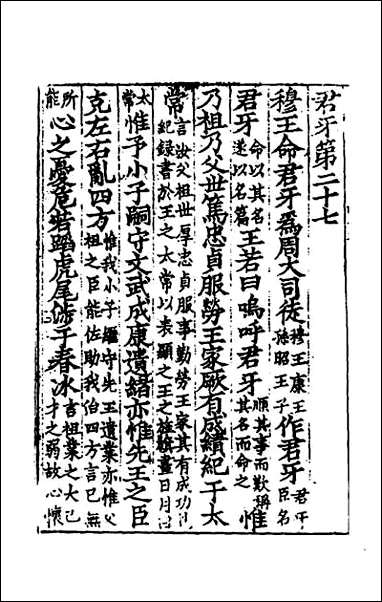 君牙第二十七
穆王命君牙爲周大司徒穆王康王孫昭王子作君牙君牙臣名
君牙命以其名遂以名篇王若曰嗚呼君牙順其事而歎稱其名而命之惟
乃祖乃父世篤忠貞服勞王家厥有成績紀于太
常言汝父祖世厚忠貞服事勤勞王家其有成功紀錄書於王之太常以表顯之王之旌旗畫日月曰
太常惟予小子嗣守文武成康遺緒亦惟先王之臣
克左右亂四方惟我小子繼守先王遺業亦惟父祖之臣能佐助我治四方言已無
所能心之憂危若蹈虎尾涉于春冰言祖業之大己才之弱故心懷